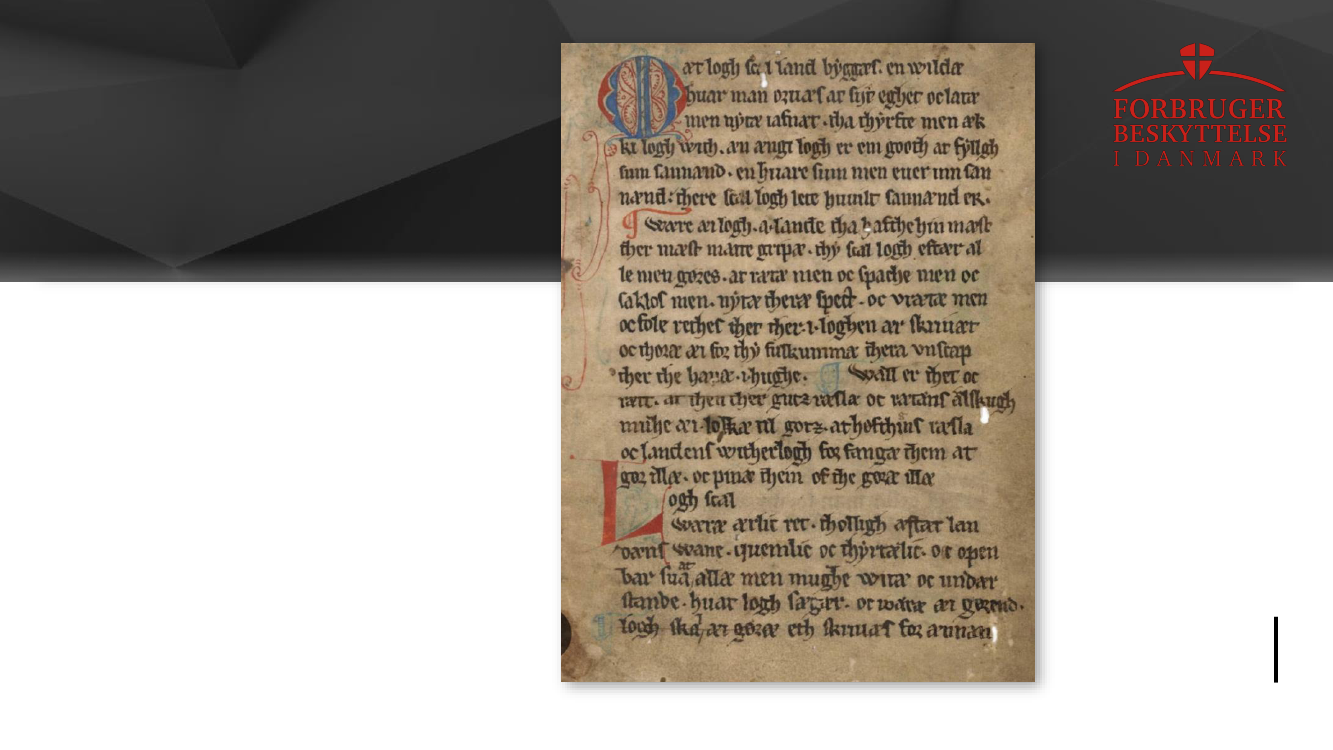 Mæt logh scal land byggæs. en wildæ
huar man oruæs at sijt eghet oc latæ
men nytæ iafnæt. tha thyrfte men æk
ki logh with. æn ængi logh er em gooth at fyllgh
sum sannænd. en huare sum men euer um san
nænd. there scal logh lete huilt sannænd er.
ware æi logh a lande tha hafthe hin mæst
ther mæst matte gripæ. thy scal logh eftær al
le men gøres. at rætæ men oc spache men oc
sakløs men. nytæ theræ spect. oc vrætæ men
oc fole rethes ther ther i loghen ær skriuæt
oc thoræ æi for thy fulkummæ thera vnscap
ther the hauæ i hughe. Wæll er thet oc
ræt. at then ther guz ræsla oc rætæns ælskugh
mughe æi lokkæ til goz. at høfthins ræsla
oc landens witherlogh for fangæ them at
gør illæ. oc pinæ them of the gøræ illæ
Logh scal
wæræ ærlic ret. thollugh æftær lan
dæns wane. quemlic oc thyrtælic. oc open
bar sua at allæ men mughe witæ oc undær
stande. huat logh sæger. oc wæræ æi gørend.
logh skal æi gøræ eth skriuæs for annan
FORBRUGER
BESKYTTELSE
I DANMARK